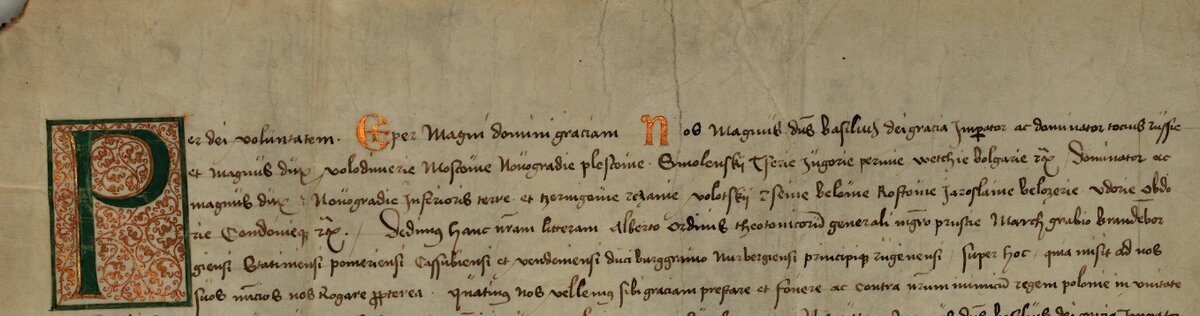 Per dei voluntatem. Et per Magni domini graciam Nos Magnus dns basilius dei gracia Imperator ac dominator tocius russie
et magnus dux volodimerie Moscovie Novogradie plescovie. Smolenskij Tferie Jugorie permie wetchie bolgarie rcx / Dominator ac
magnus dux Novogradie Inferioris terre et tzernigovie rezanie volotskij rseive belovie Rostovie Jaroslavie belozerie udorie obdo
rie Condenieq rcx / Dedimus hanc nram litteram Alberto Ordinis theotonicorum generali mgro prussie March grabio brandebor
giensi Statinensi pomeriensi Cassubiensi et vendeniensi duci burggravio Nurbergiensi principiq rugenensi / super hoc / qma misit ad nos
suos nuncios nos Rogare propterea. quatinus nos vellemus sibi graciam prestare et fovere ac contra nrum inimicum regem polonie in unitate
dns basilius dei gracia Imperator